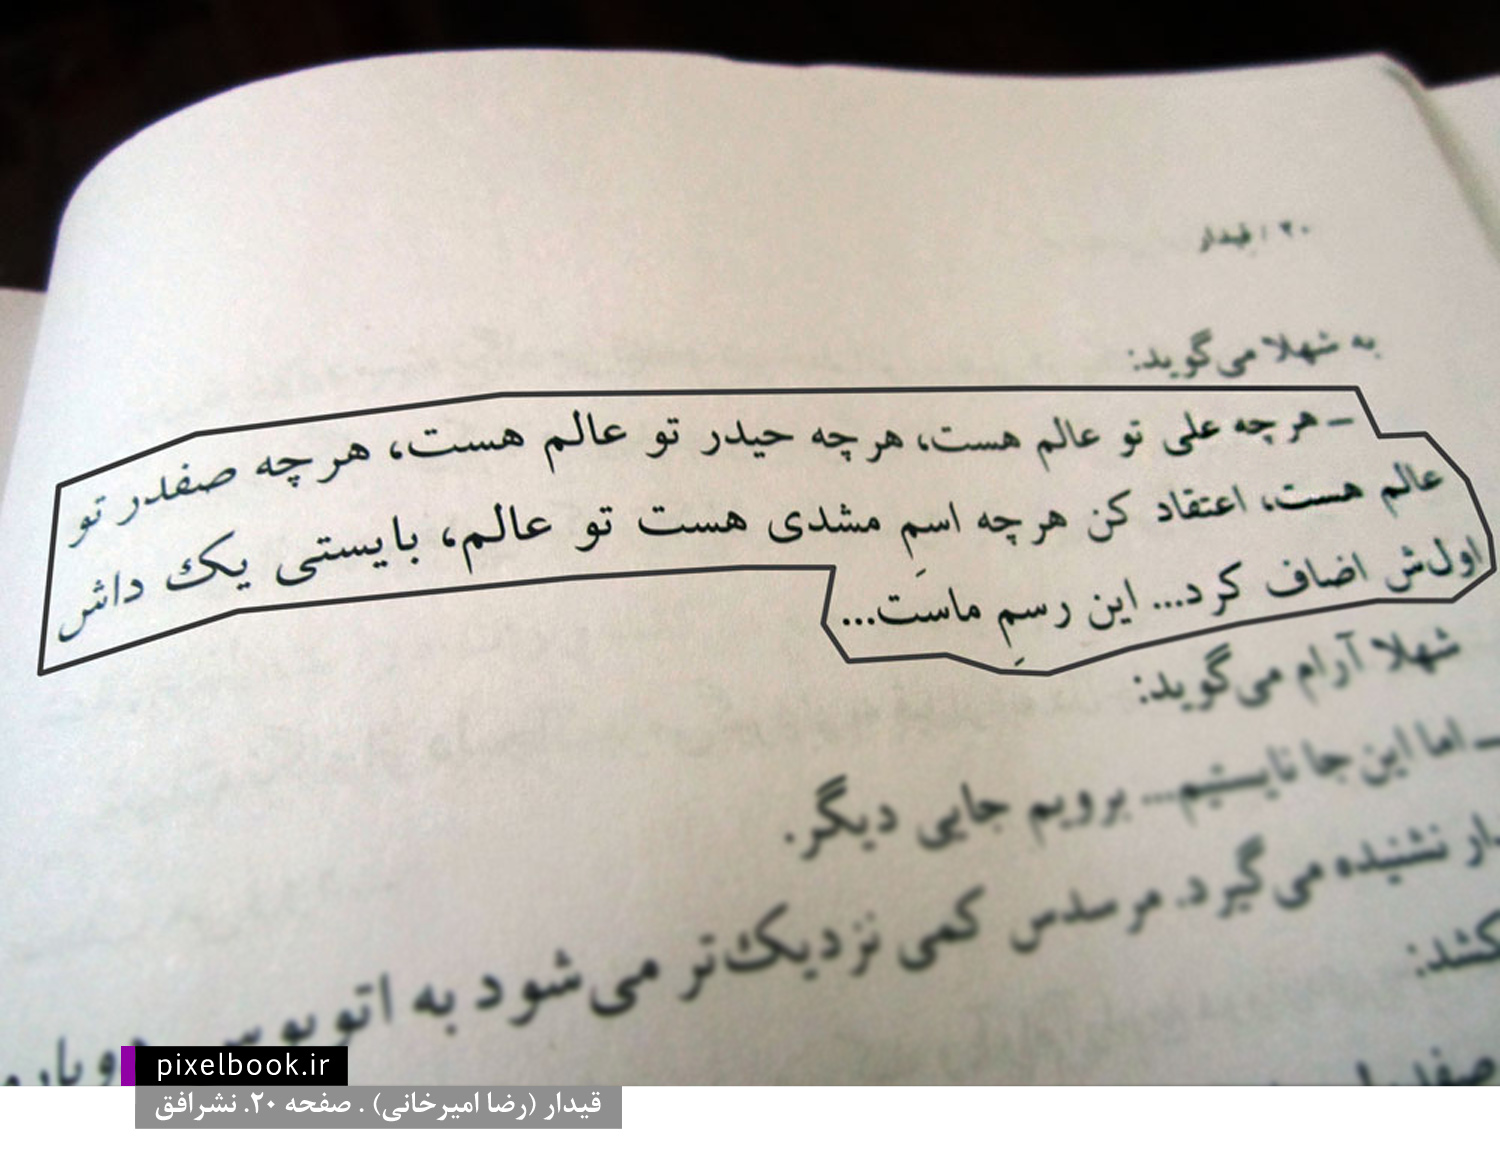 ۲۰ / قیدار
به شهلا می‌گوید:
ـ هرچه علی تو عالم هست، هرچه حیدر تو عالم هست، هرچه صفدر تو
عالم هست، اعتقاد کن هرچه اسمِ مشدی هست تو عالم، بایستی یک داش
اول‌ش اضاف کرد... این رسمِ ماست...
شهلا آرام می‌گوید:
ـ اما این جا نایستیم... برویم جایی دیگر.
نشنیده می‌گیرد. مرسدس کمی نزدیک‌تر می‌شود به اتوبوس
کشد:
pixelbook.ir
قیدار (رضا امیرخانی) . صفحه ۲۰. نشرافق